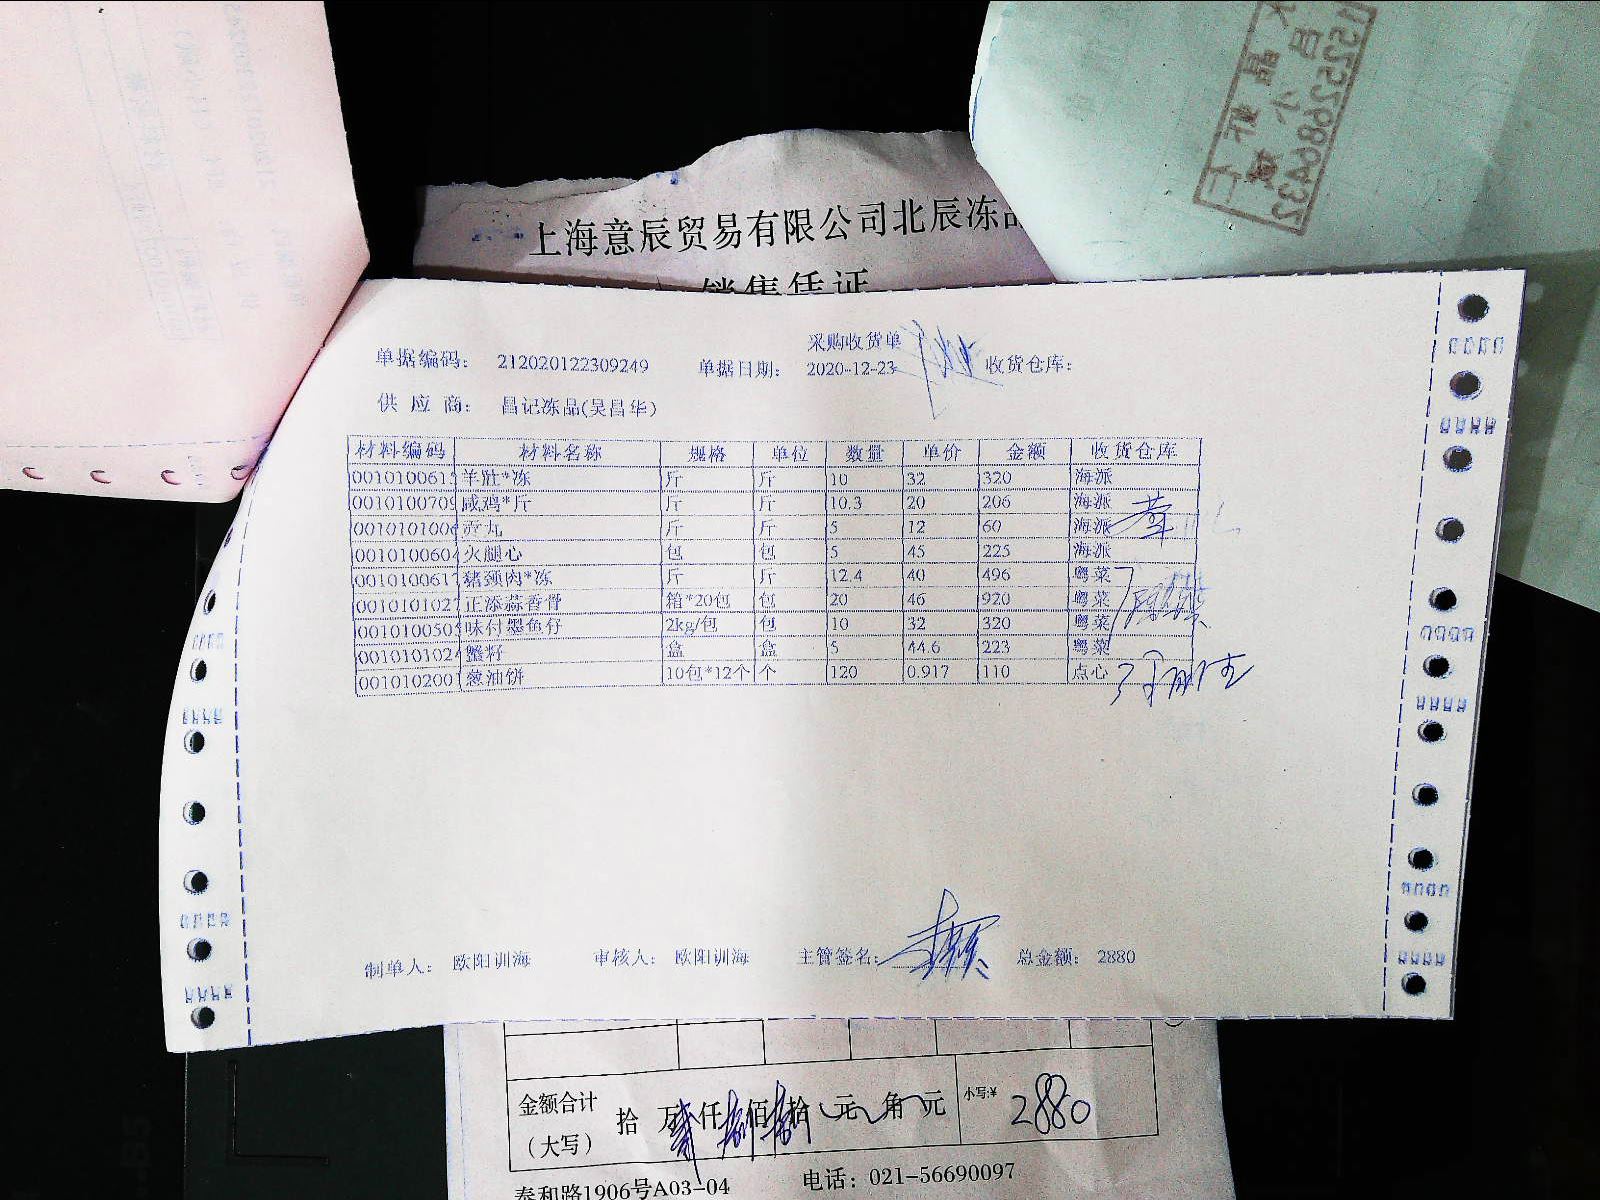 上海意辰贸易有限公司北辰冻品
销售凭证
采购收货单
单据编码： 212020122309249 单据日期： 2020-12-23 收货仓库：
供 应 商： 昌记冻品(吴昌华)
材料编码 材料名称 规格 单位 数量 单价 金额 收货仓库
001010061 羊肚*冻 斤 斤 10 32 320 海派
001010070 咸鸡*斤 斤 斤 10.3 20 206 海派
001010100 贡丸 斤 斤 5 12 60 海派
001010060 火腿心 包 包 5 45 225 海派
001010061 猪颈肉*冻 斤 斤 12.4 40 496 粤菜
001010102 正添蒜香骨 箱*20包 包 20 46 920 粤菜
001010050 味付墨鱼仔 2kg/包 包 10 32 320 粤菜
001010102 蟹籽 盒 盒 5 44.6 223 粤菜
001010200 葱油饼 10包*12个 个 120 0.917 110 点心
制单人： 欧阳训海 审核人： 欧阳训海 主管签名： 总金额： 2880
金额合计 拾 万 仟 佰 拾 元 角 元 小写:¥ 2880
（大写）
泰和路1906号A03-04 电话：021-56690097
15252686432